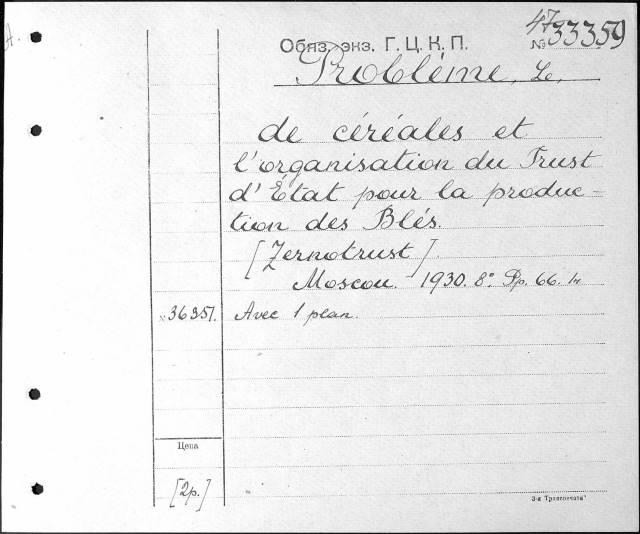 А.
47
Обяз. экз. Г.Ц.К.П. № 33359
Problème, Le,
de céréales et
l'organisation du Trust
d'État pour la produc-
tion des Blés.
[Zernotrust].
Moscou. 1930. 8° Pp. 66.
36357. Avec 1 plan.
Цена
[2р.]